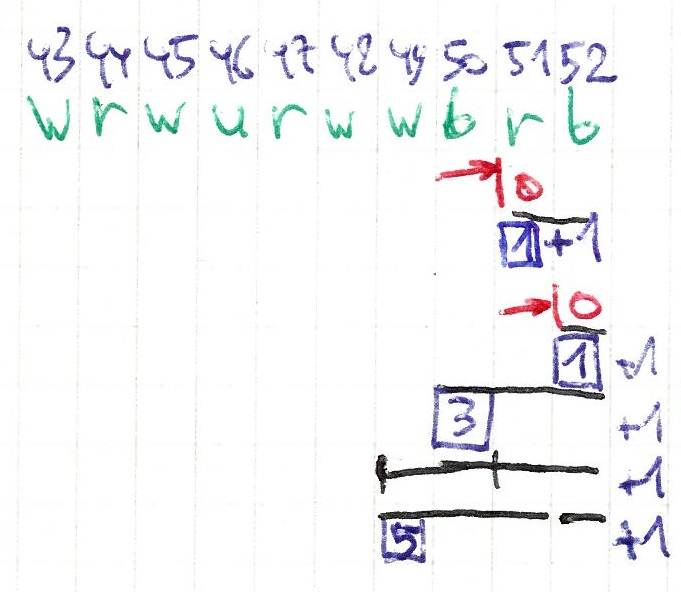 43 44 45 46 47 48 49 50 51 52
w r w u r w w b r b
0
1 +1
0
1 +1
3 +1
+1
5 +1